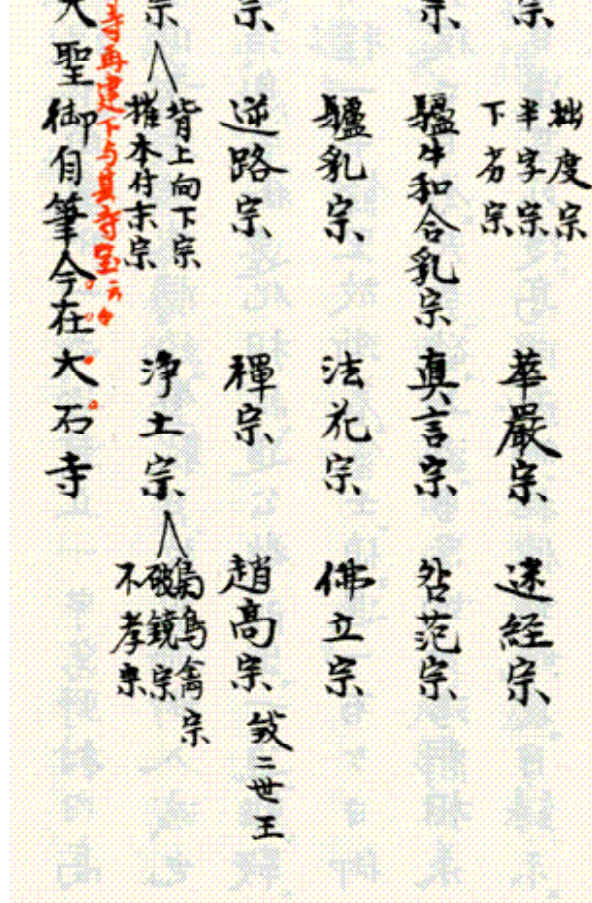 宗 拙度宗
半字宗
下劣宗
華嚴宗 迷経宗
宗 驢牛和合乳宗 眞言宗 呰范宗
驢乳宗 法花宗 佛立宗
宗 逆路宗 禪宗 趙高宗 二世王
宗 背上向下宗
摧本付末宗
浄土宗 鳥禽宗
破鏡宗
不孝宗
寺再建下与其寺宝云々
大聖御自筆今在大石寺